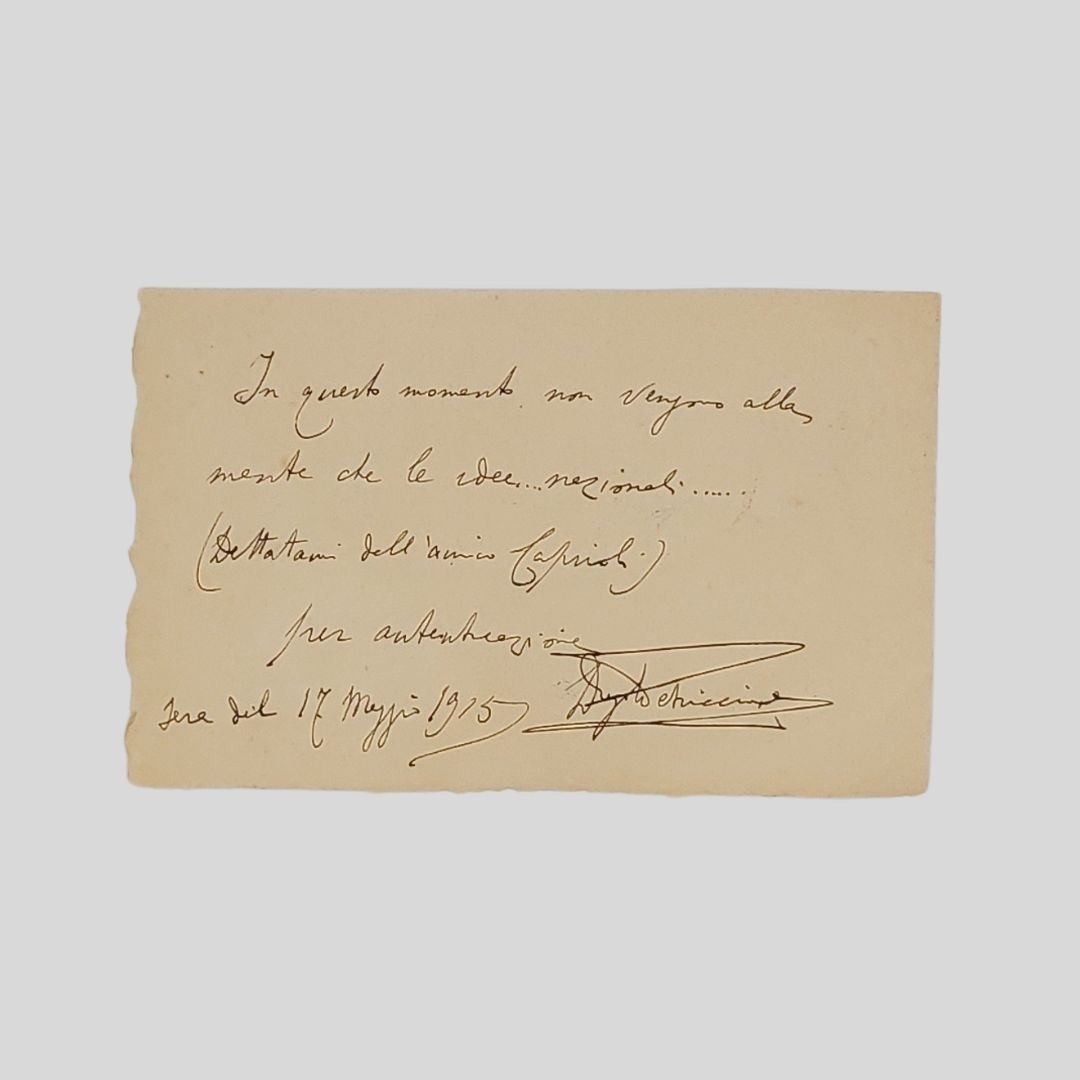 In questo momento non vengono alla
mente che le idee....nazionali......
(Dettatami dall'amico Caprioli)
per autenticazione
Sera del 17 Maggio 1915